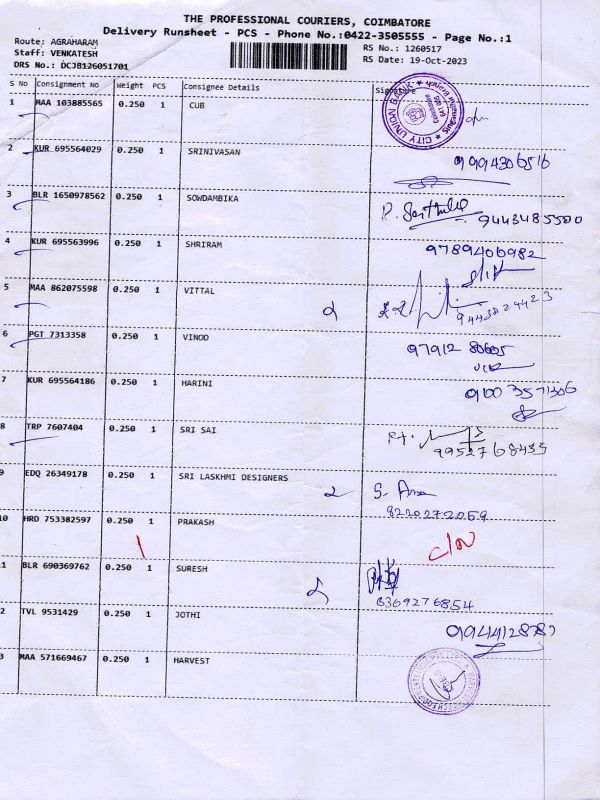 THE PROFESSIONAL COURIERS, COIMBATORE
Delivery Runsheet - PCS - Phone No.:0422-3505555 - Page No.:1
Route: AGRAHARAM
Staff: VENKATESH
DRS No.: DCJB126051701
RS No.: 1260517
RS Date: 19-Oct-2023
S No Consignment No Weight PCS Consignee Details Signature
1 MAA 103885565 0.250 1 CUB
CITY UNION BANK
Coimbatore
641 001
2 KUR 695564029 0.250 1 SRINIVASAN 9994306516
3 BLR 1650978562 0.250 1 SOWDAMBIKA 9443485500
4 KUR 695563996 0.250 1 SHRIRAM 9789406982
5 MAA 862075598 0.250 1 VITTAL 9443824423
6 PGT 7313358 0.250 1 VINOD 97912 80605
7 KUR 695564186 0.250 1 HARINI 9003571306
8 TRP 7607404 0.250 1 SRI SAI 9952768435
9 EDQ 26349178 0.250 1 SRI LASKHMI DESIGNERS 2 8220272059
10 HRD 753382597 0.250 1 PRAKASH
1 BLR 690369762 0.250 1 SURESH 8369276854
2 TVL 9531429 0.250 1 JOTHI 9944128787
3 MAA 571669467 0.250 1 HARVEST